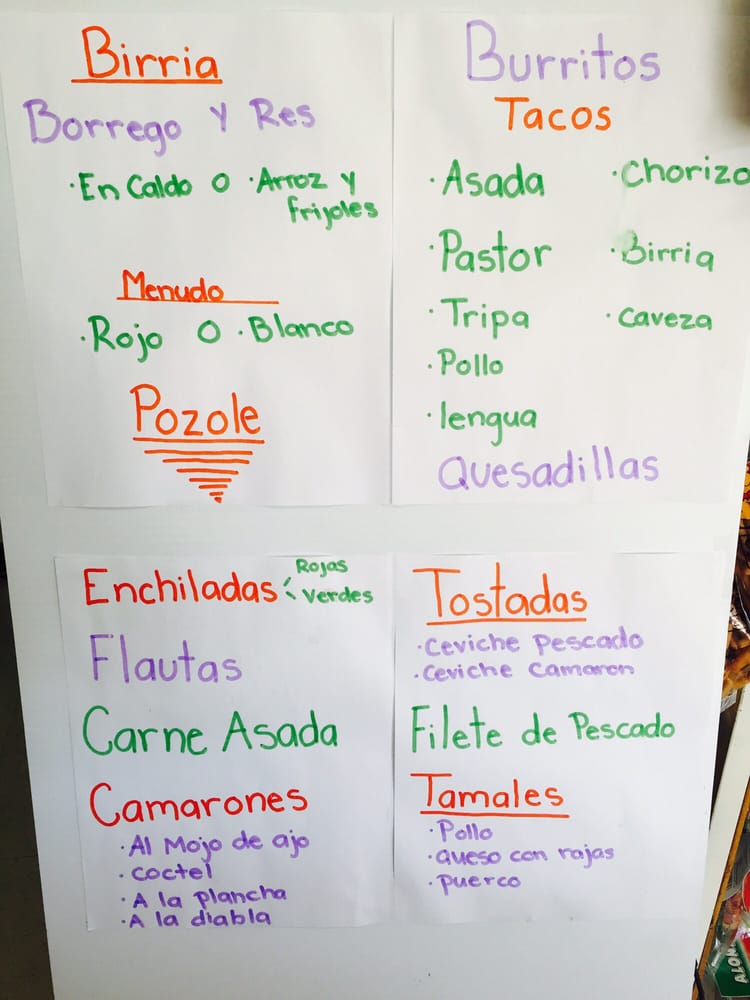 Birria
Borrego y Res
·En Caldo o ·Arroz y
frijoles
Menudo
·Rojo o ·Blanco
Pozole
Burritos
Tacos
·Asada ·Chorizo
·Pastor ·Birria
·Tripa ·Caveza
·Pollo
·lengua
Quesadillas
Enchiladas Rojas
Verdes
Flautas
Carne Asada
Camarones
·Al Mojo de ajo
·coctel
·A la plancha
·A la diabla
Tostadas
·Ceviche Pescado
·Ceviche Camaron
Filete de Pescado
Tamales
·Pollo
·queso con rajas
·puerco